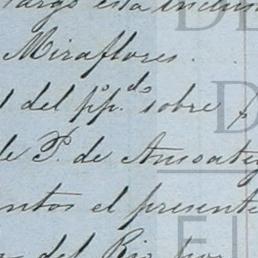 largo esta inclus
Miraflores.
l del p.p.do sobre
de P. de Ansoateg
ntos el presente
del Rio por